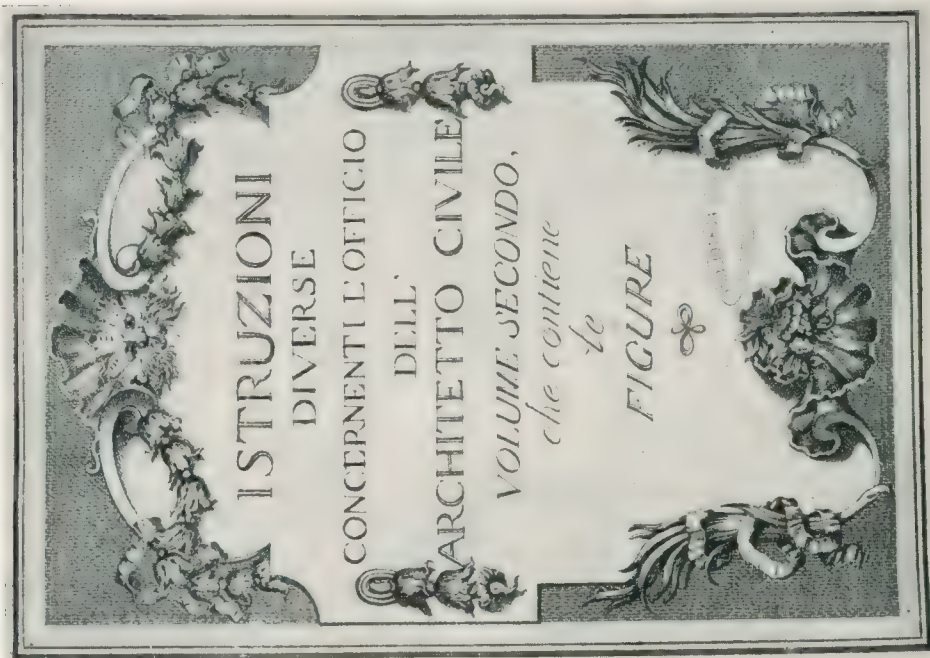 ISTRUZIONI
DIVERSE
CONCERNENTI L'OFFICIO
DELL'
ARCHITETTO CIVILE
VOLUME SECONDO,
che contiene
le
FIGURE